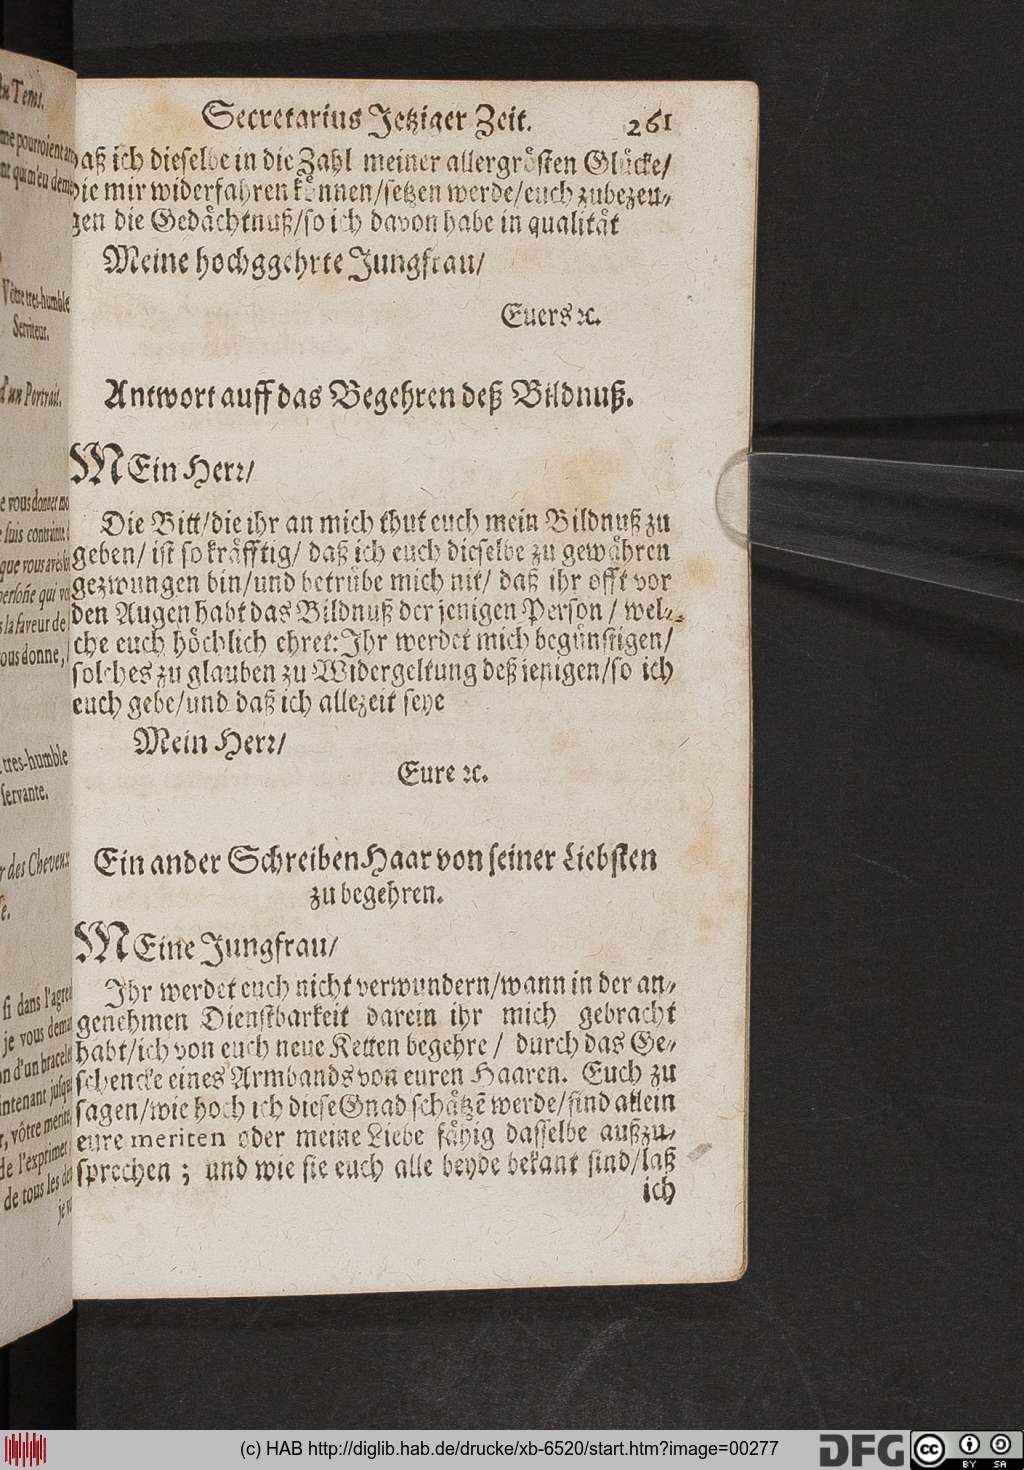 Secretarius Jetziger Zeit. 261
daß ich dieselbe in die Zahl meiner allergrösten Glücke/
die mir widerfahren können/setzen werde/euch zubezeu-
gen die Gedächtnuß/so ich davon habe in qualität
Meine hochggehrte Jungfrau/
Euers ꝛc.
Antwort auff das Begehren deß Bildnuß.
MEin Herr/
Die Bitt/die ihr an mich thut euch mein Bildnuß zu
geben/ ist so kräfftig/ daß ich euch dieselbe zu gewähren
gezwungen bin/und betrübe mich nit/ daß ihr offt vor
den Augen habt das Bildnuß der jenigen Person/ wel-
che euch höchlich ehret: Ihr werdet mich begünstigen/
solches zu glauben zu Widergeltung deß jenigen/so ich
euch gebe/und daß ich allezeit seye
Mein Herr/
Eure ꝛc.
Ein ander Schreiben Haar von seiner Liebsten
zu begehren.
MEine Jungfrau/
Ihr werdet euch nicht verwundern/wann in der an-
genehmen Dienstbarkeit darein ihr mich gebracht
habt/ich von euch neue Ketten begehre/ durch das Ge-
schencke eines Armbands von euren Haaren. Euch zu
sagen/wie hoch ich diese Gnad schätzē werde/sind allein
eure meriten oder meine Liebe fähig dasselbe außzu-
sprechen; und wie sie euch alle beyde bekant sind/laß
ich
An Tems.
Vôtre tres-humble
Serviteur.
d'un Portrait.
e vous donner mo
e suis contrainte
que vous avés
persoñe qui vo
s la faveur de
vous donne,
tres-humble
servante.
r des Cheveux
si dans l'agre
je vous deman
on d'un bracele
intenant jusqu
r, vôtre merite
de l'exprimer
de tous les de
je v
(c) HAB http://diglib.hab.de/drucke/xb-6520/start.htm?image=00277
DFG
cc BY SA